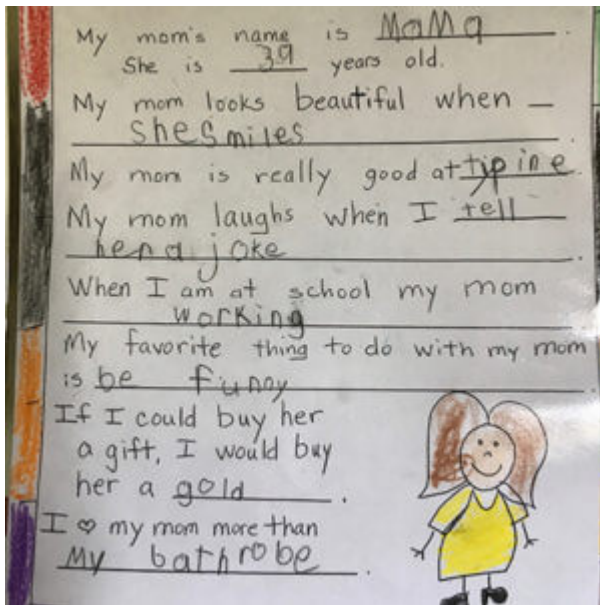 My mom's name is MaMa.
She is 39 years old.
My mom looks beautiful when
she smiles.
My mom is really good at tipine.
My mom laughs when I tell
her a joke.
When I am at school my mom
working.
My favorite thing to do with my mom
is be funny.
If I could buy her
a gift, I would buy
her a gold.
I ♡ my mom more than
My bathrobe.